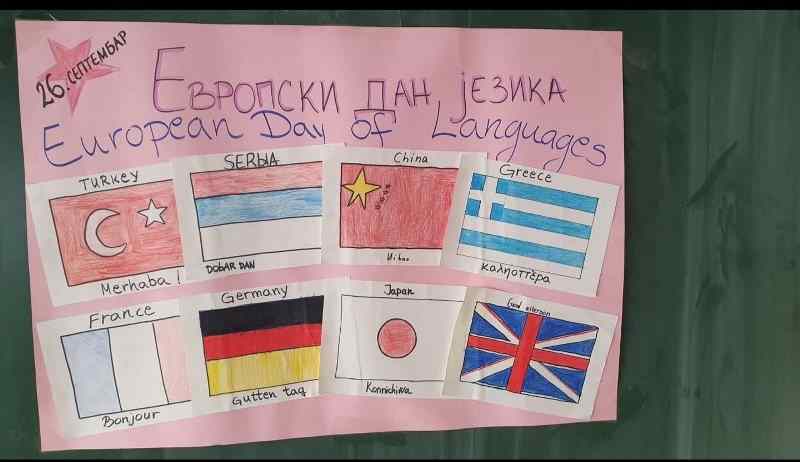 26. СЕПТЕМБАР
ЕВРОПСКИ ДАН ЈЕЗИКА
European Day of Languages
TURKEY
SERBIA
China
Greece
Merhaba!
DOBAR DAN
Nihao
France
Germany
Japan
Bonjour
Gutten tag
Konnichiwa